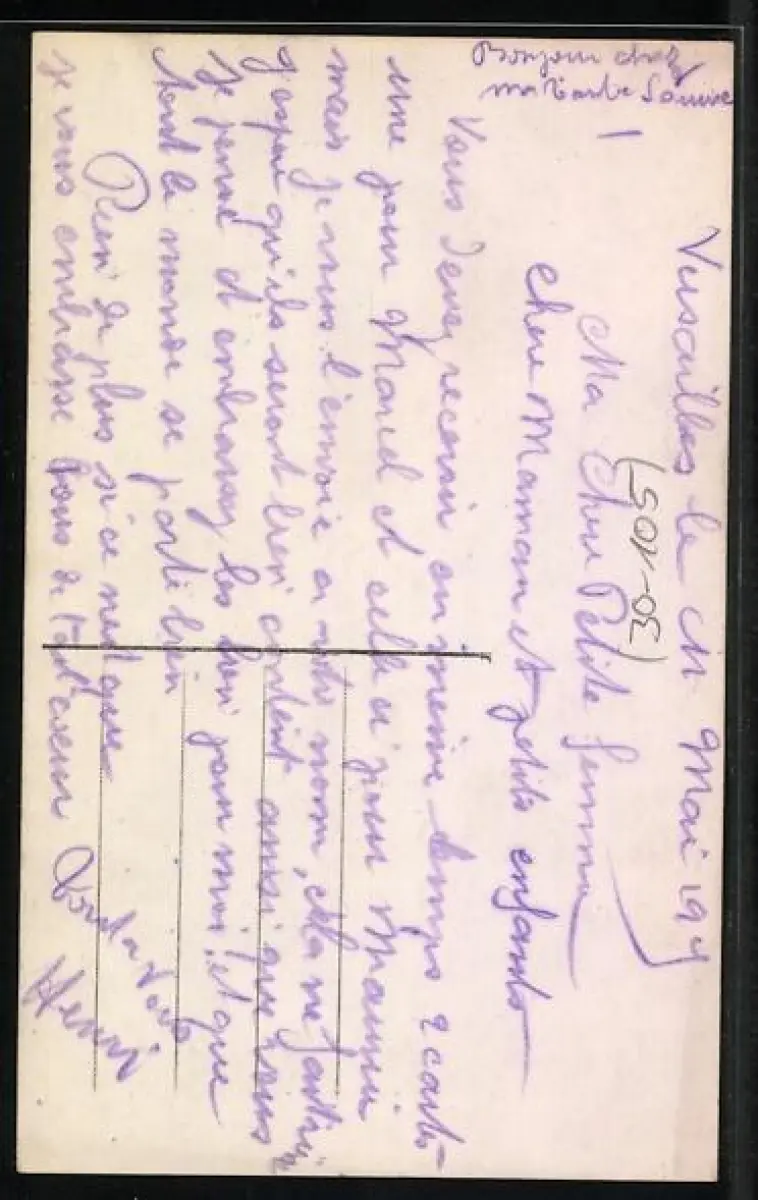 Bonjour chez
ma tante Louise
Versailles le 21 Mai 19
Ma Chere Petite femme
30-105
chere Maman et petits enfants
Vous devez recevoir en meme temps 2 cartes
une pour Marcel et celle ci pour
mais je vous l'envoie a votre nom,
j'espere qu'ils seront bien content ainsi que vous
Je pense et embrassez les bien pour moi, et que
tout le monde se porte bien
Rien de plus si ce nest que
je vous embrasse tous de tout coeur
Henri